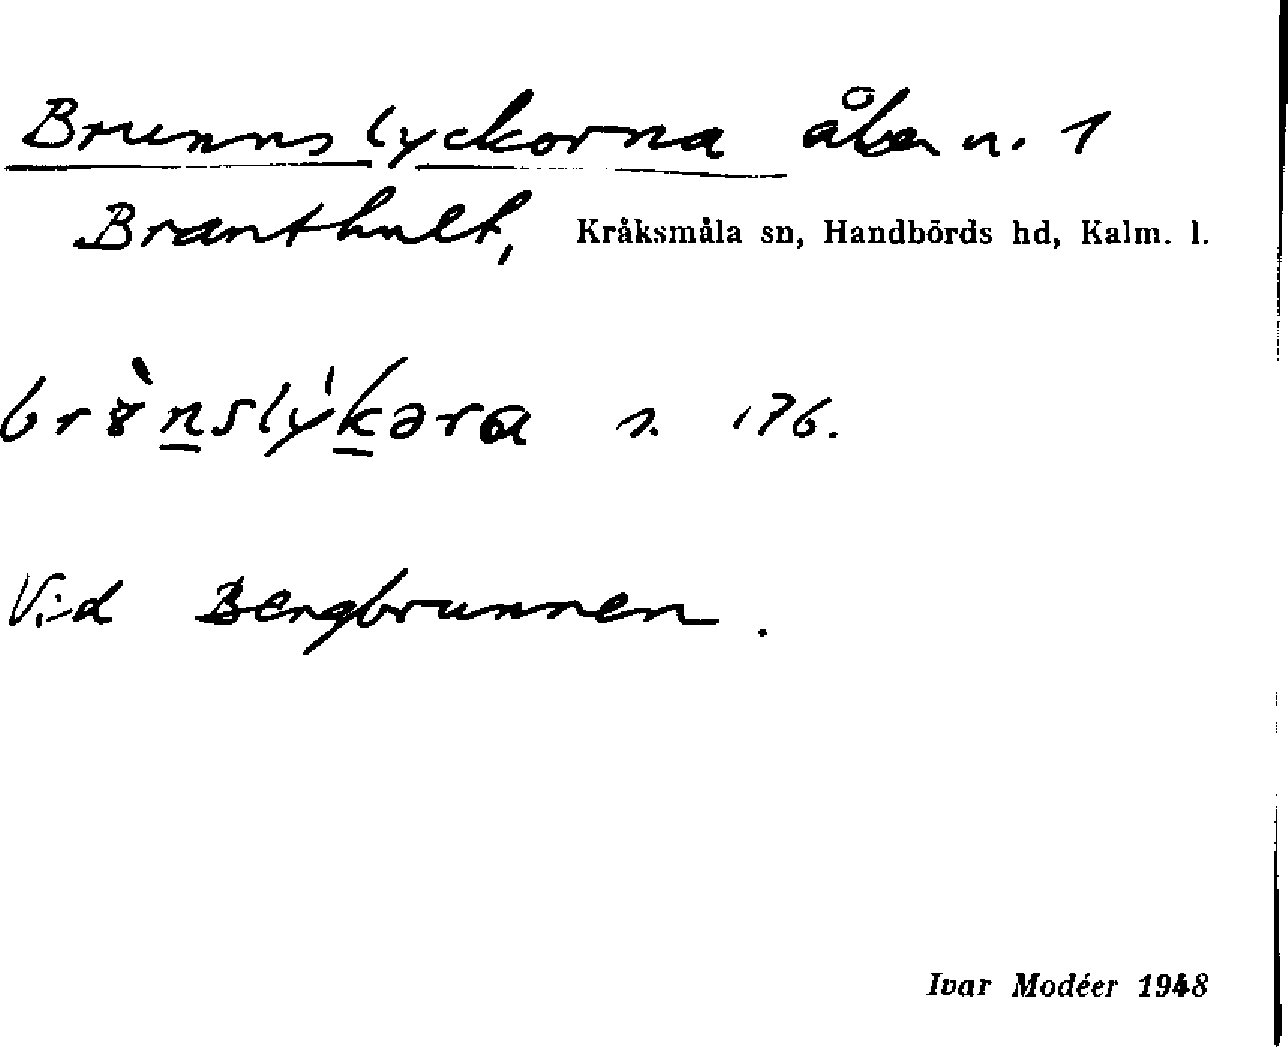 Brunnslyckorna åker n. 1
Branthult, Kråksmåla sn, Handbörds hd, Kalm. l.
s. 176.
Vid Bergbrunnen.
Ivar Modéer 1948